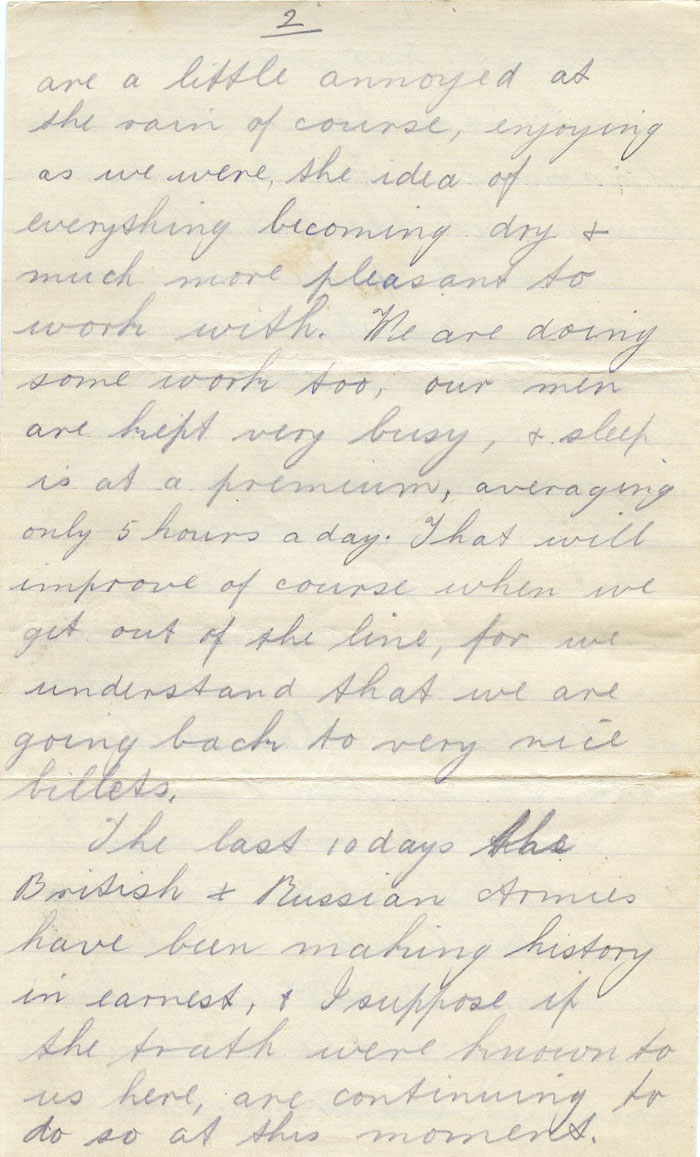 2
are a little annoyed at
the rain of course, enjoying
as we were, the idea of
everything becoming dry &
much more pleasant to
work with. We are doing
some work too, our men
are kept very busy, & sleep
is at a premium, averaging
only 5 hours a day. That will
improve of course when we
get out of the line, for we
understand that we are
going back to very nice
billets.
The last 10 days the
British & Russian Armies
have been making history
in earnest, & I suppose if
the truth were known to
us here, are continuing to
do so at this moment.